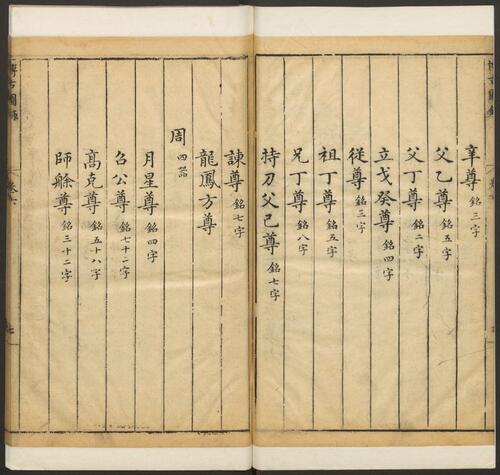 辛尊銘三字
父乙尊銘五字
父丁尊銘二字
立戈癸尊銘四字
從尊銘三字
祖丁尊銘五字
兄丁尊銘八字
持刀父己尊銘七字
諫尊銘七字
龍鳳方尊
周四器
月星尊銘四字
召公尊銘七十二字
高克尊銘五十八字
師艅尊銘三十二字
博古圖錄
卷六
七